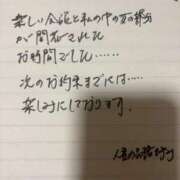 楽しい会話と私の中のMの部分
が開花された
お時間でした……
次のお約束までには……
楽しみにしております。